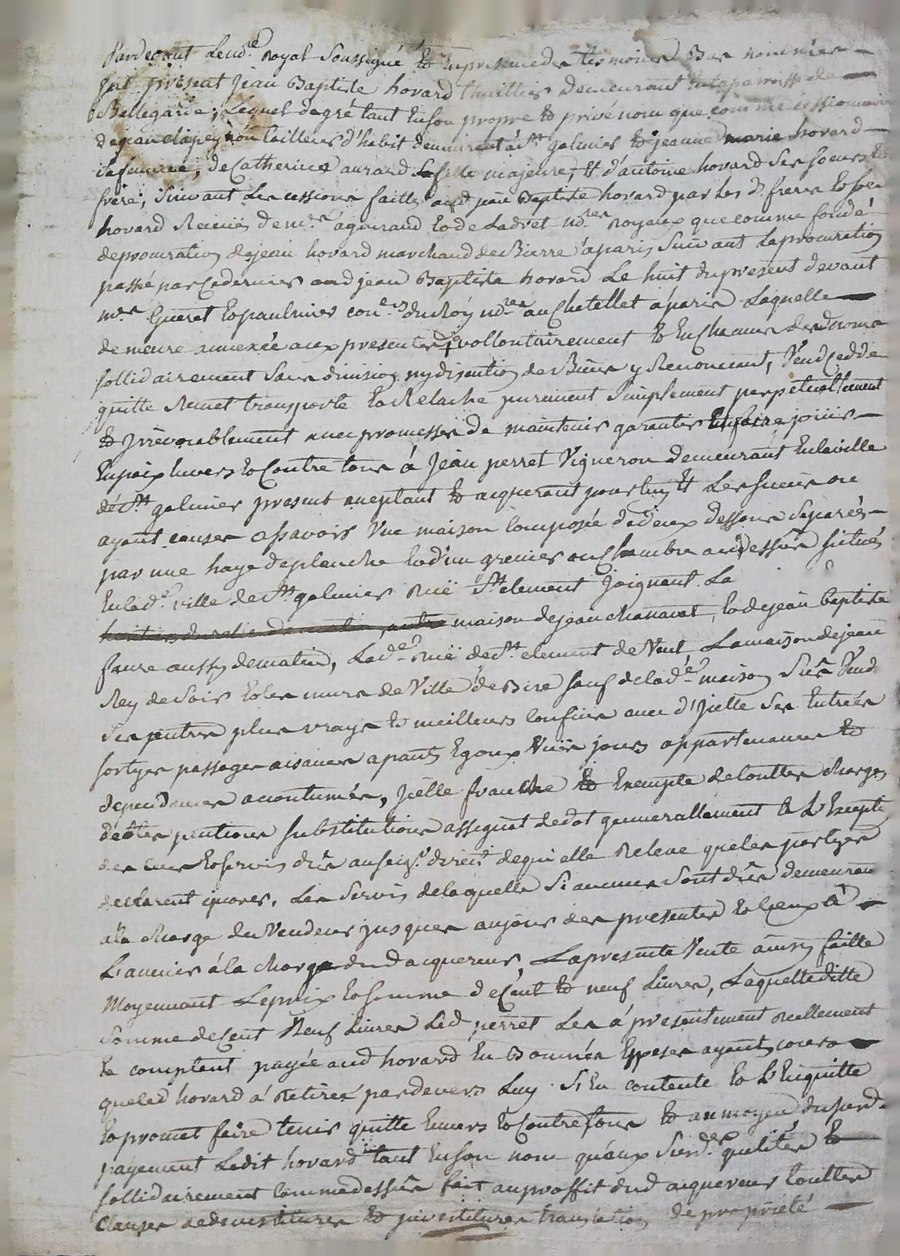 Pardevant le no.re Royal Soussigné & en presence des temoins Bas nommés
fut présent Jean Baptiste hovard thuillier demeurant en la paroisse de
Bellegarde, lequel de gré tant en son propre & privé nom que comme cessionnaire
de jean clapeyron tailleur d'habit demeurant à St. galmier & jeanne marie hovard
sa femme, de Catherine aurard la fille majeure, & d'antoine hovard ses soeurs &
frère, suivant les cessions faittes aud jean Baptiste hovard par les d. frere & soeurs
hovard Reçuës de mes. agniraud & de Ladret nres. Royaux que comme fondé
de procuration de jean hovard marchand de Bierre à paris suivant la procuration
passé par ce dernier aud jean Baptiste hovard Le huit du present devant
mes. Gueret & paulmier cone.rs du Roy nores au Chatellet à paris Laquelle
demeure annexée aux presentes, vollontairement & en Chacun desd noms
sollidairement sans division ny discution de Biens y Renoncant, Vend cedde
quitte Remet transporte & Relache purement simplement perpetuellement
& jrrevocablement avec promesse de maintenir garantir & faire jouir
en paix envers & Contre tous à Jean perret Vigneron demeurant en la ville
de St. galmier present acceptant & acquerant pour luy & Les siens ou
ayant causes assavoir Une maison Composée de deux dessous separés
par une haye de planche & d'un grenier ou chambre au dessus situés
en lad.e ville de St. galmier ruë St. clement Joignant La
maison de jean chanavat, & de jean Baptiste
faure aussy de matin, Lad.e ruë de St. clement de Vent La maison de jean
Rey de soir & les murs de Ville de Bize sauf de lad.e maison sise Vend
ses autres plus vrays & meilleurs confins avec d'jcelle ses Entrées
sortyes passages aisances apants Egoux Vuës jours appartenances &
dependances acoutumées, jcelle franche & Exempte de touttes charges
dettes pentions substitutions assignat de dot generallement & L'Excepti
des cens & servis dûs au seigr. direct de qui elle Releve que les partyes
declarent ignorer, Les servis de laquelle si aucuns sont dûs demeurant
à la charge du Vendeur jusques aujour des presentes & Ceux à
L'avenir à la charge dud acquereur, La presente Vente ainsy faitte
Moyennant Le prix & somme de Cent & neuf Livres, Laquelle ditte
Somme de Cent Neuf Livres Led. perret Les à presentement reellement
& comptant payée aud hovard En Bonnes Especes ayant cours
que led hovard à Retirée pardevers Luy. S'En contente & L'En quitte
& promet faire tenir quitte Envers & Contre tous & au moyen dususd
payement Ledit hovard tant en son nom qu'aux susd.es qualités &
sollidairement Comme dessus fait au proffit dud acquereur touttes
Clauses de devestitures & jnvestitures translation de proprieté